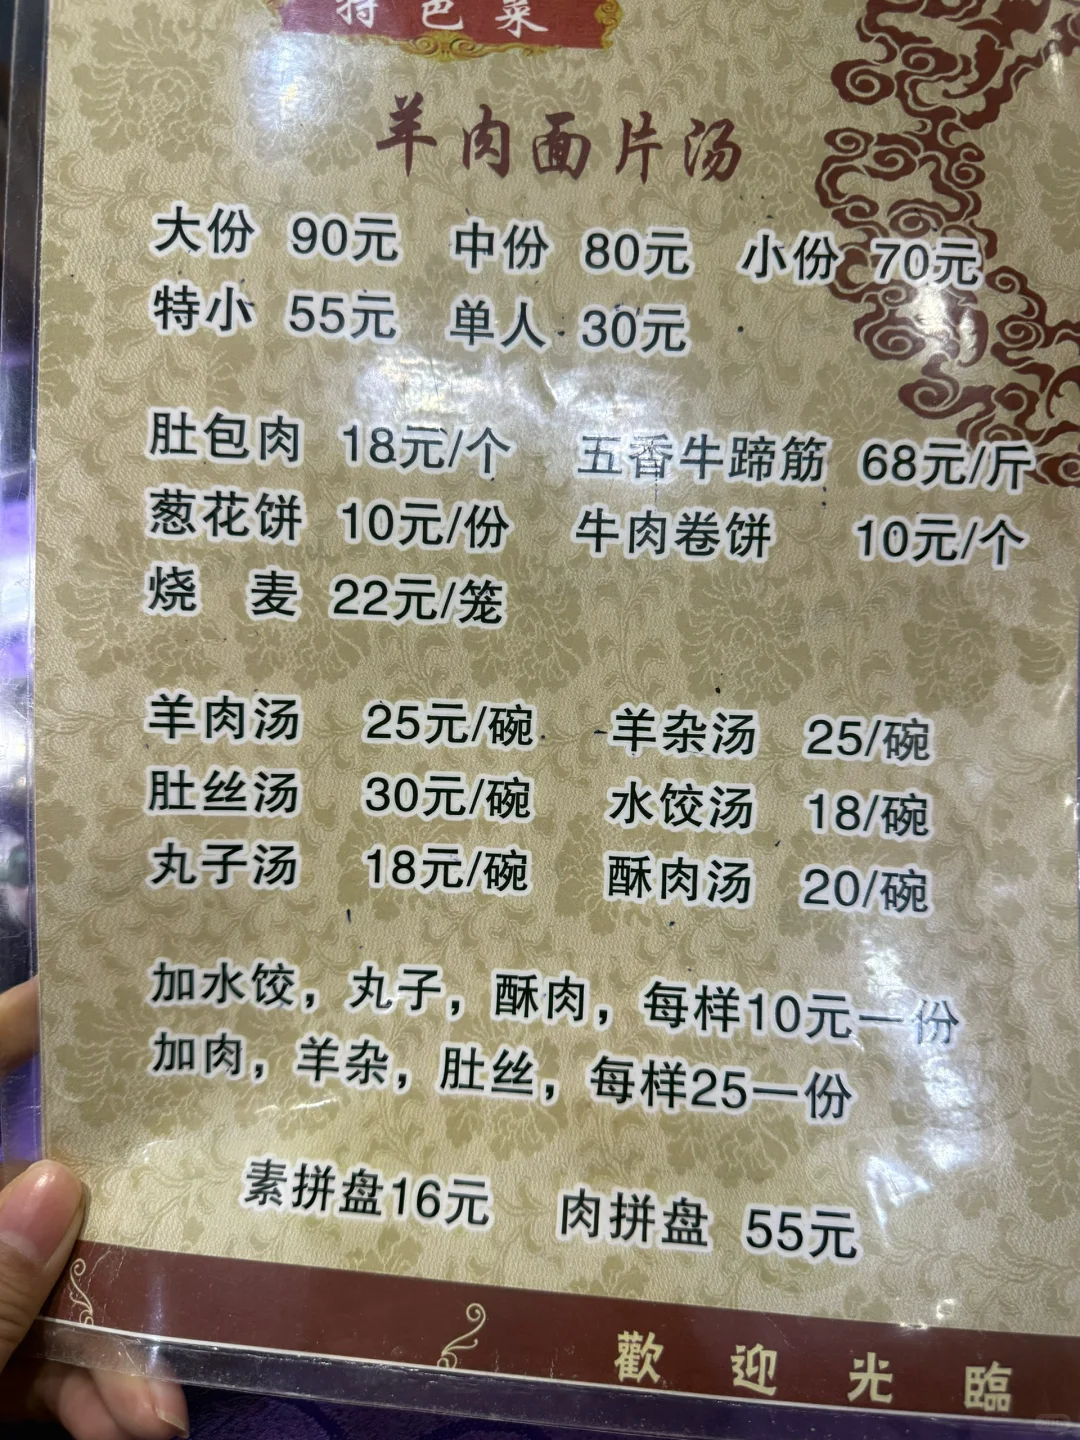 特色菜
羊肉面片汤
大份 90元 中份 80元 小份 70元
特小 55元 单人 30元
肚包肉 18元/个 五香牛蹄筋 68元/斤
葱花饼 10元/份 牛肉卷饼 10元/个
烧 麦 22元/笼
羊肉汤 25元/碗 羊杂汤 25/碗
肚丝汤 30元/碗 水饺汤 18/碗
丸子汤 18元/碗 酥肉汤 20/碗
加水饺，丸子，酥肉，每样10元一份
加肉，羊杂，肚丝，每样25一份
素拼盘16元 肉拼盘 55元
歡迎光臨